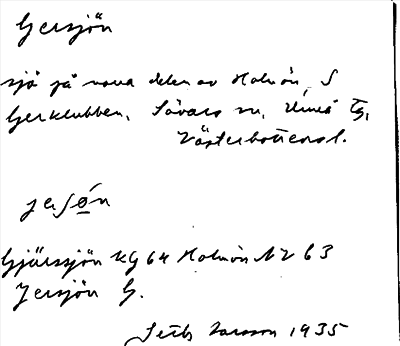 Gersjön
sjö på norra delen av Holmön, S
Gerklubben, Sävars sn, Umeå tg,
Västerbottens l.
jersø´n
Gjärssjön KG 64 Holmön NV 63
Jersjön G.
Seth Larsson 1935